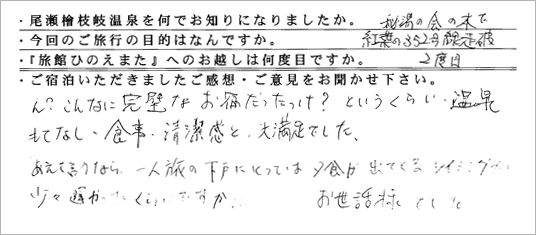 ・尾瀬檜枝岐温泉を何でお知りになりましたか。 秘湯の会の本で
・今回のご旅行の目的はなんですか。 紅葉の352号線走破
・『旅館ひのえまた』へのお越しは何度目ですか。 2度目
・ご宿泊いただきましたご感想・ご意見をお聞かせ下さい。
え?こんなに完璧なお宿だったっけ?というくらい、温泉
もてなし・食事・清潔感と、大満足でした。
あえて言うなら、一人旅の下戸にとっては夕食が出てくるタイミングが
少々遅かったくらいですか… お世話様でした